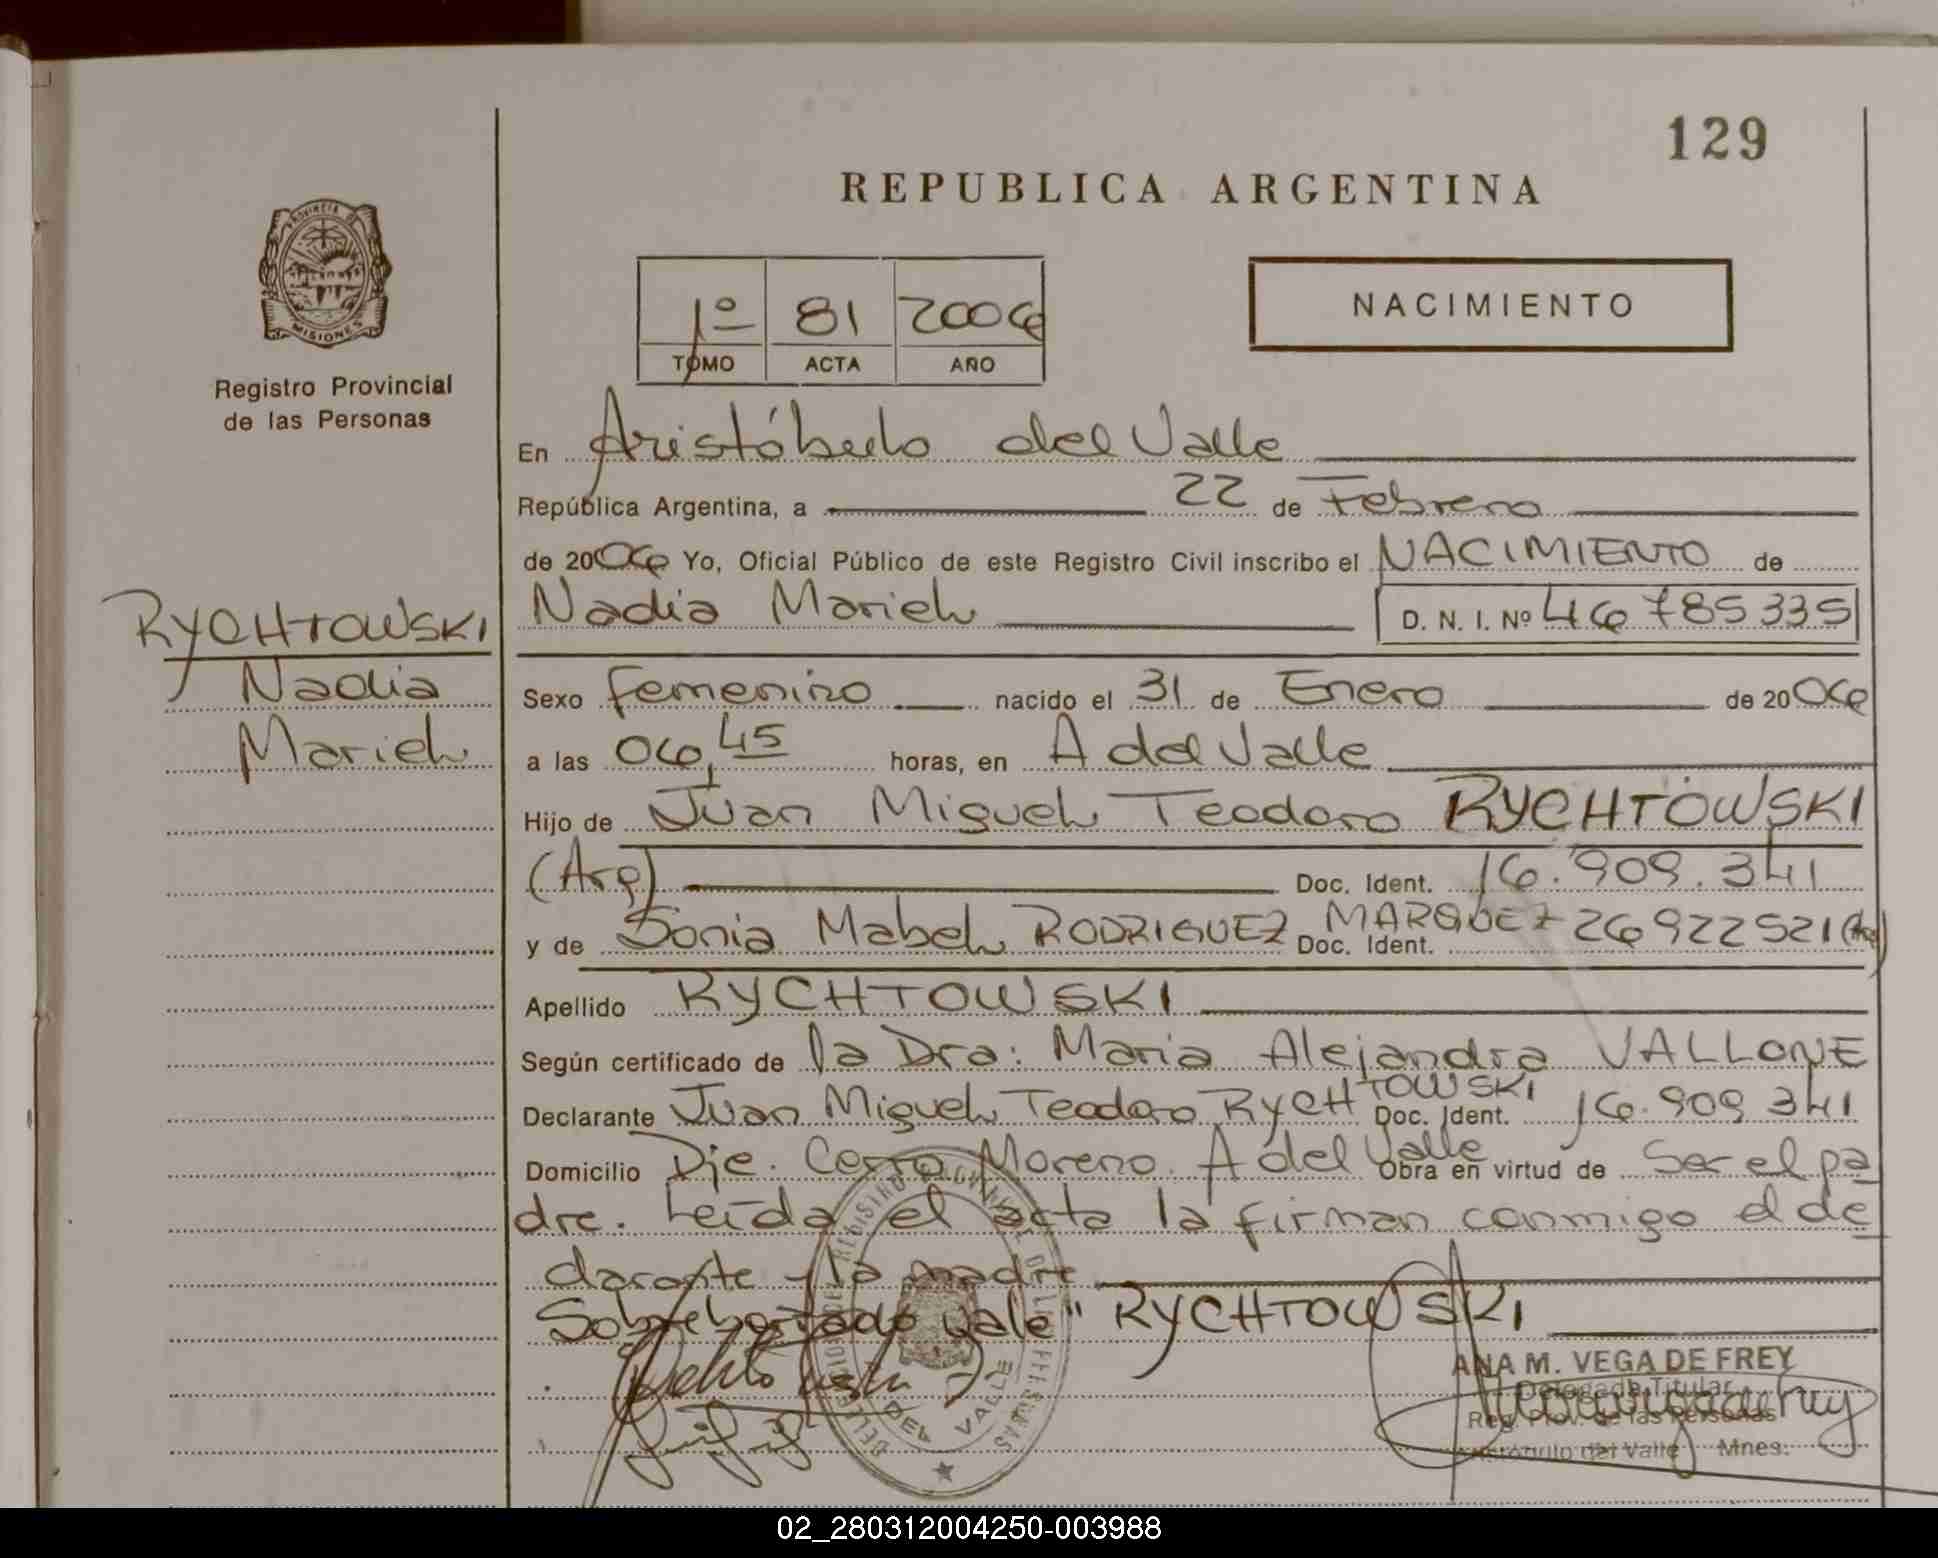 129
REPUBLICA ARGENTINA
PROVINCIA DE
MISIONES
Registro Provincial
de las Personas
1º 81 2006
TOMO ACTA AÑO
NACIMIENTO
En Aristóbulo del Valle
República Argentina, a 22 de Febrero
de 2006 Yo, Oficial Público de este Registro Civil inscribo el NACIMIENTO de
RYCHTOWSKI
Nadia
Mariel
Nadia Mariel D. N. I. Nº 46785335
Sexo femenino nacido el 31 de Enero de 2006
a las 06,45 horas, en A del Valle
Hijo de Juan Miguel Teodoro RYCHTOWSKI
(Arg) Doc. Ident. 16.909.341
y de Sonia Mabel RODRIGUEZ MARQUEZ Doc. Ident. 26922521 (Arg)
Apellido RYCHTOWSKI
Según certificado de la Dra: Maria Alejandra VALLONE
Declarante Juan Miguel Teodoro RYCHTOWSKI Doc. Ident. 16.909341
Domicilio Pje. Cerro Moreno. A del Valle Obra en virtud de Ser el pa
dre. Leída el acta la firman conmigo el de
clarante y la madre
Sobreborrado vale" RYCHTOWSKI
DEL VALLE
ANA M. VEGA DE FREY
Delegada Titular
Reg. Prov. de las Personas
Aristóbulo del Valle Mnes.
02_280312004250-003988